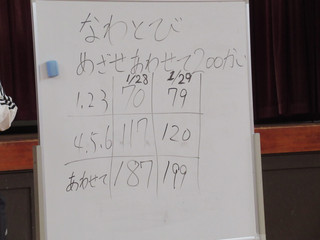 なわとび
めざせあわせて200かい
1/28 1/29
1.2.3 70 79
4.5.6 117 120
あわせて 187 199